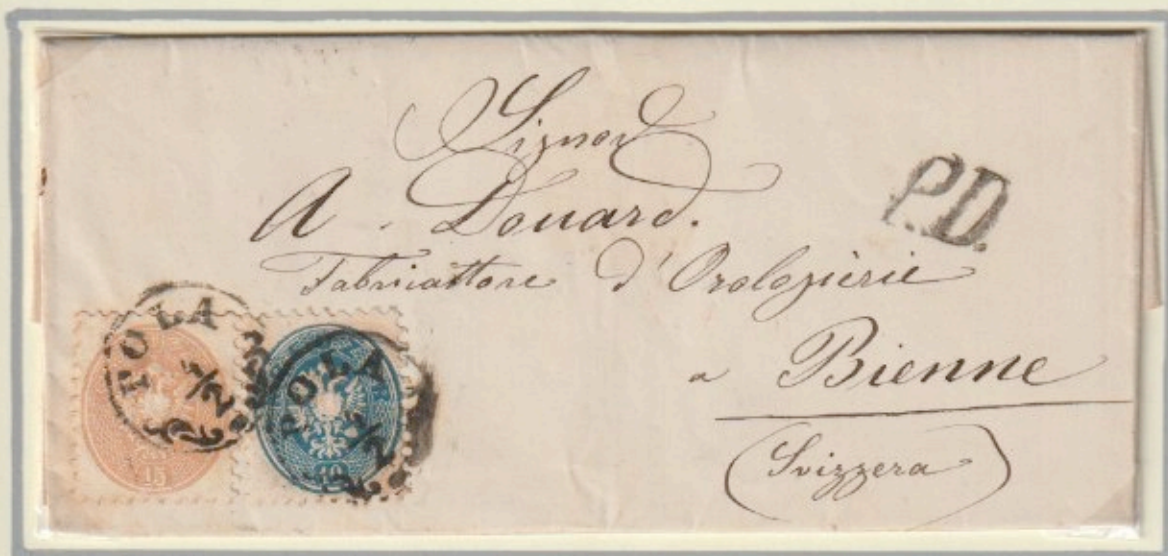 Signor
A. Douard.
Fabricattore d'Orologièrie
a Bienne
(Svizzera)
P.D.
POLA
5/2
15
POLA
5/2
10